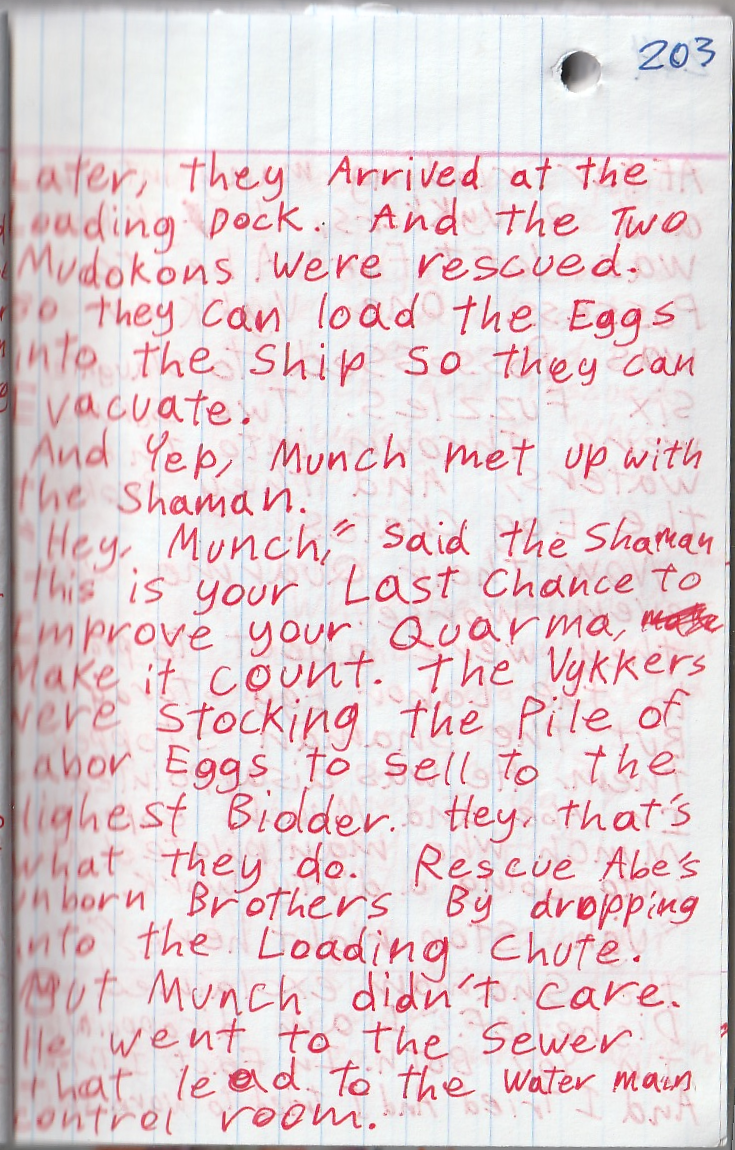 203
Later, they Arrived at the
Loading Dock. And the Two
Mudokons were rescued.
So they can load the Eggs
into the Ship so they can
Evacuate.
And Yep, Munch met up with
the Shaman.
"Hey, Munch," said the Shaman
"this is your Last Chance to
Improve your Quarma,
Make it count. The Vykkers
were stocking the Pile of
Labor Eggs to sell to the
Highest Bidder. Hey, that's
what they do. Rescue Abe's
unborn Brothers By dropping
into the Loading Chute.
But Munch didn't care.
He went to the Sewer
that lead to the water main
control room.